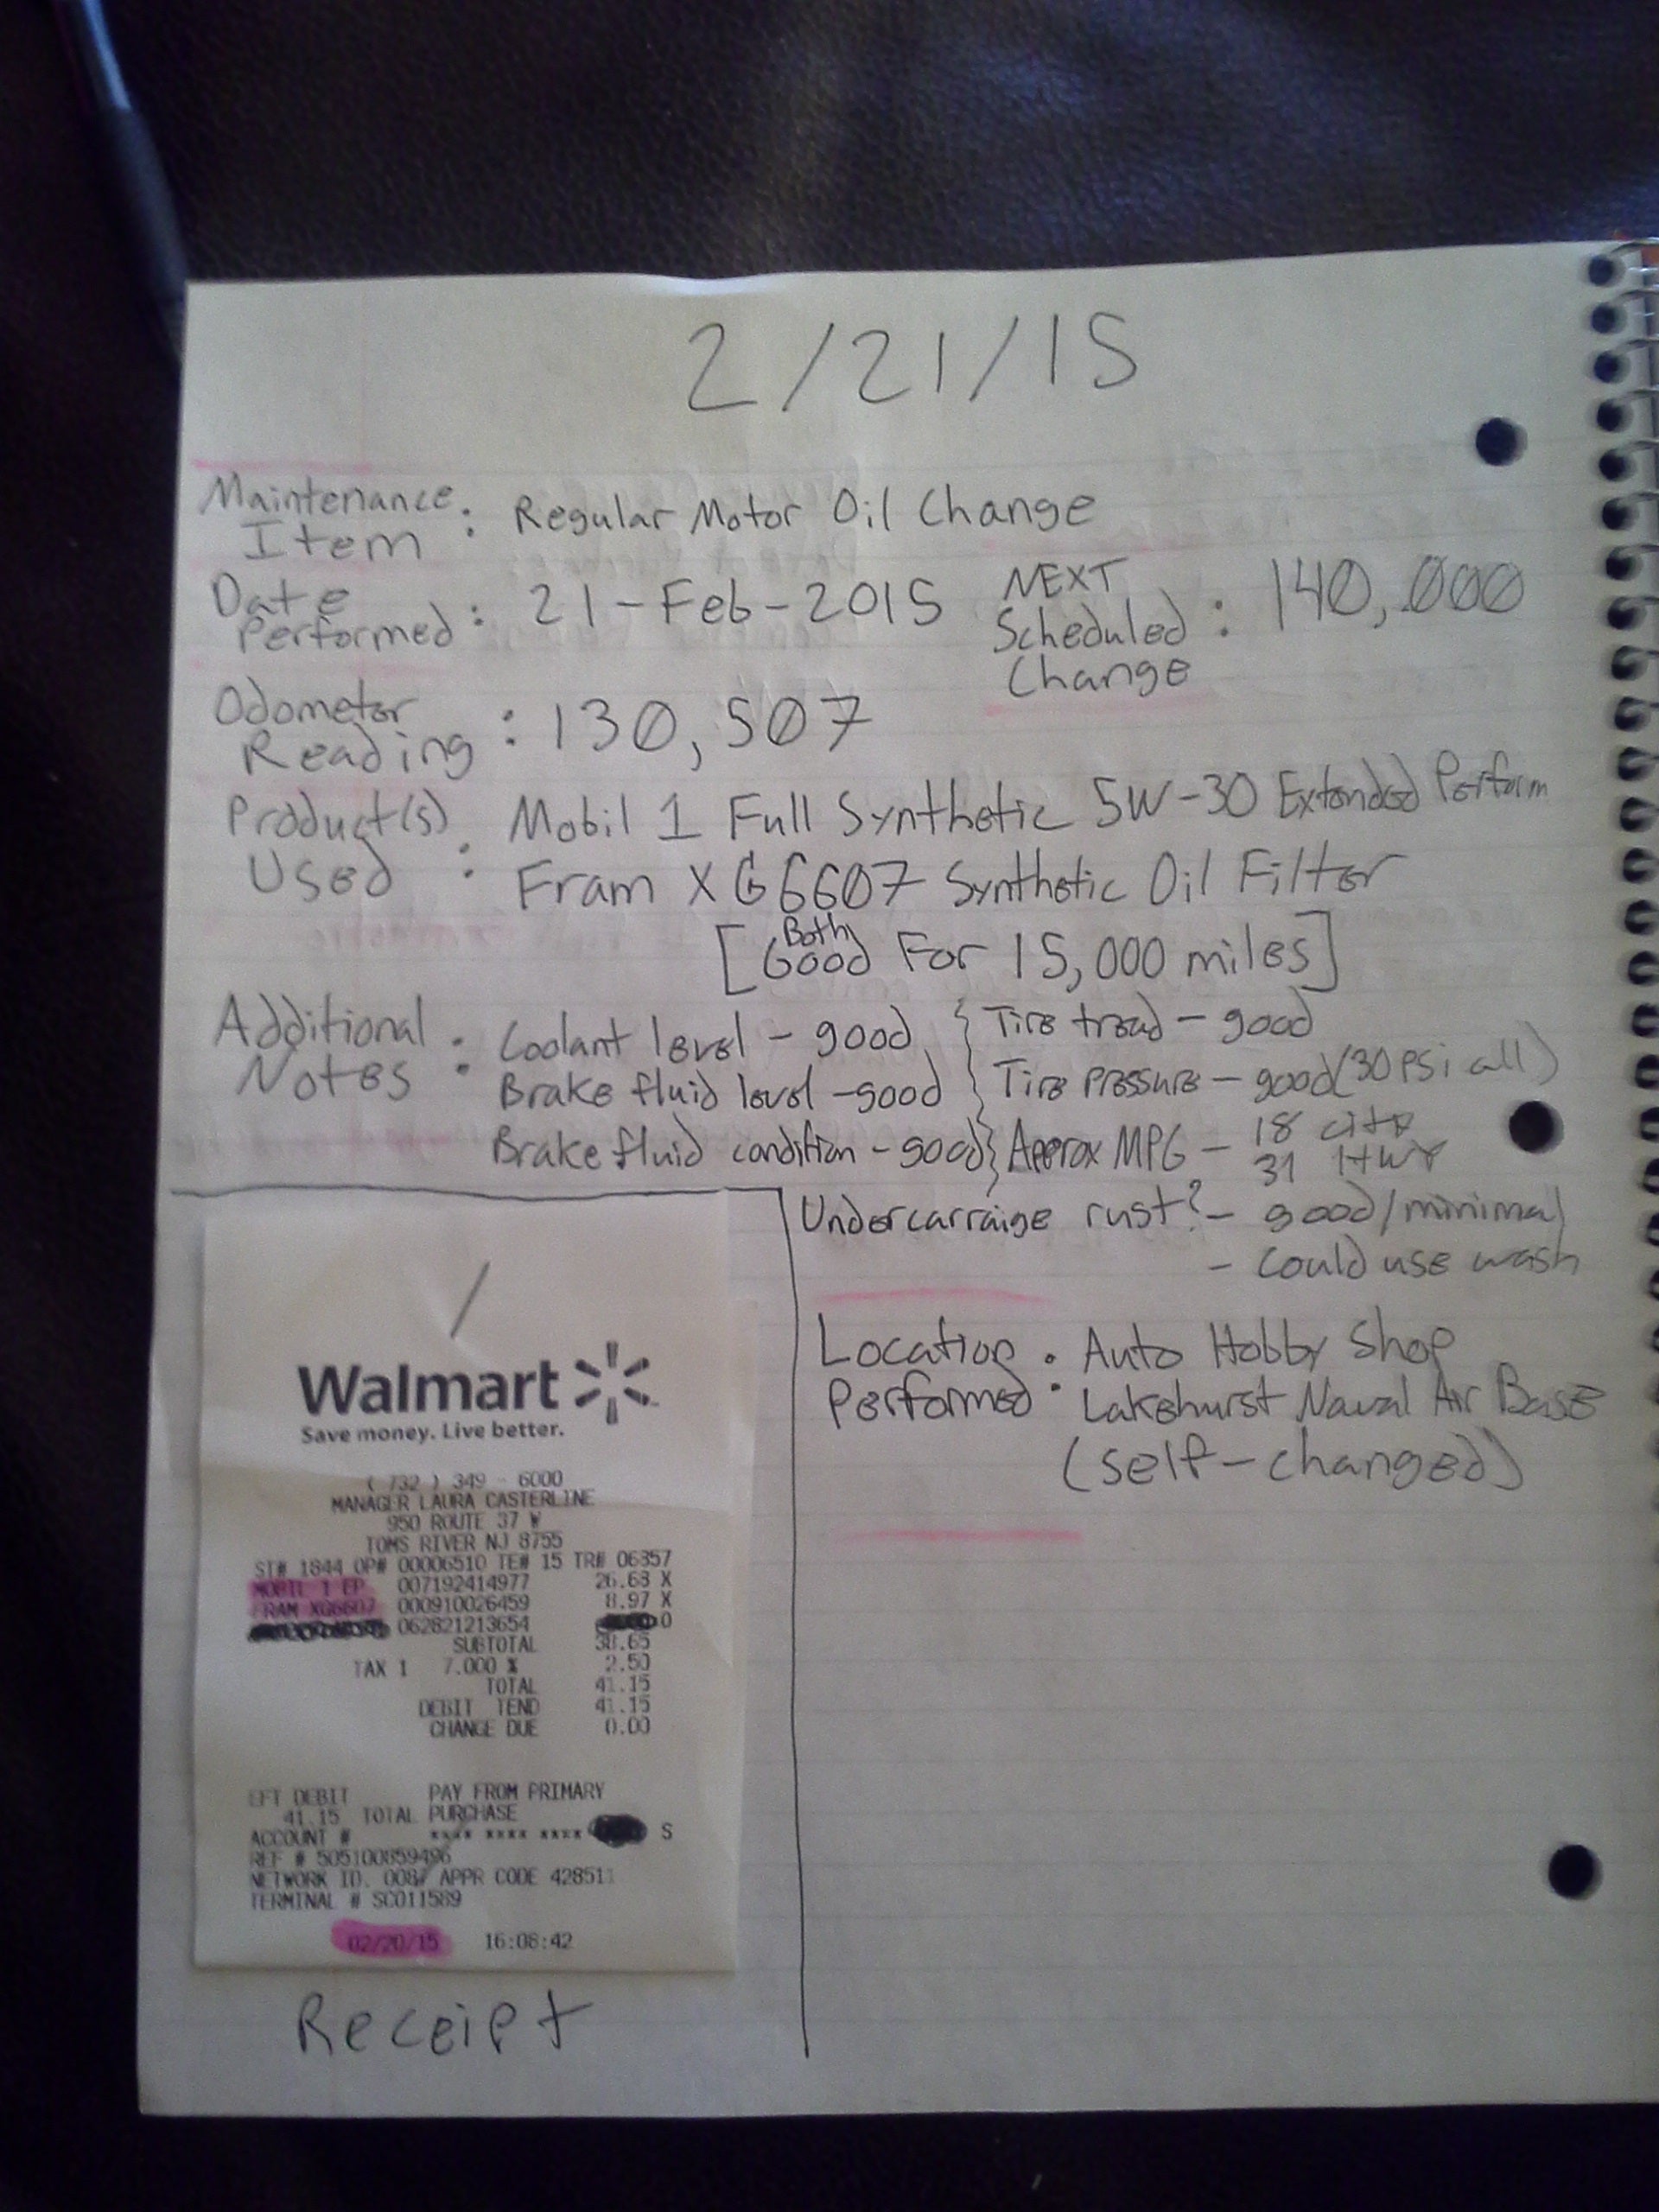 2/21/15
Maintenance Item : Regular Motor Oil Change
Date Performed : 21-Feb-2015 NEXT Scheduled Change : 140,000
Odometer Reading : 130,507
Product(s) Used : Mobil 1 Full Synthetic 5W-30 Extended Perform
Fram XG6607 Synthetic Oil Filter
[Both Good For 15,000 miles]
Additional Notes : Coolant level - good } Tire tread - good
Brake fluid level - good } Tire Pressure - good (30 psi all)
Brake fluid condition - good } Approx MPG - 18 city 31 Hwy
Undercarraige rust? - good/minimal
- could use wash
Location Performed : Auto Hobby Shop
Lakehurst Naval Air Base
(self-changed)
Walmart
Save money. Live better.
( 732 ) 349 - 6000
MANAGER LAURA CASTERLINE
950 ROUTE 37 W
TOMS RIVER NJ 8755
ST# 1844 OP# 00006510 TE# 15 TR# 06357
MOBIL 1 EP 007192414977 26.68 X
FRAM XG6607 000910026459 8.97 X
062821213654 0
SUBTOTAL 38.65
TAX 1 7.000 % 2.50
TOTAL 41.15
DEBIT TEND 41.15
CHANGE DUE 0.00
EFT DEBIT PAY FROM PRIMARY
41.15 TOTAL PURCHASE
ACCOUNT # **** **** **** S
REF # 505100859496
NETWORK ID. 0087 APPR CODE 428511
TERMINAL # SC011589
02/20/15 16:08:42
Receipt